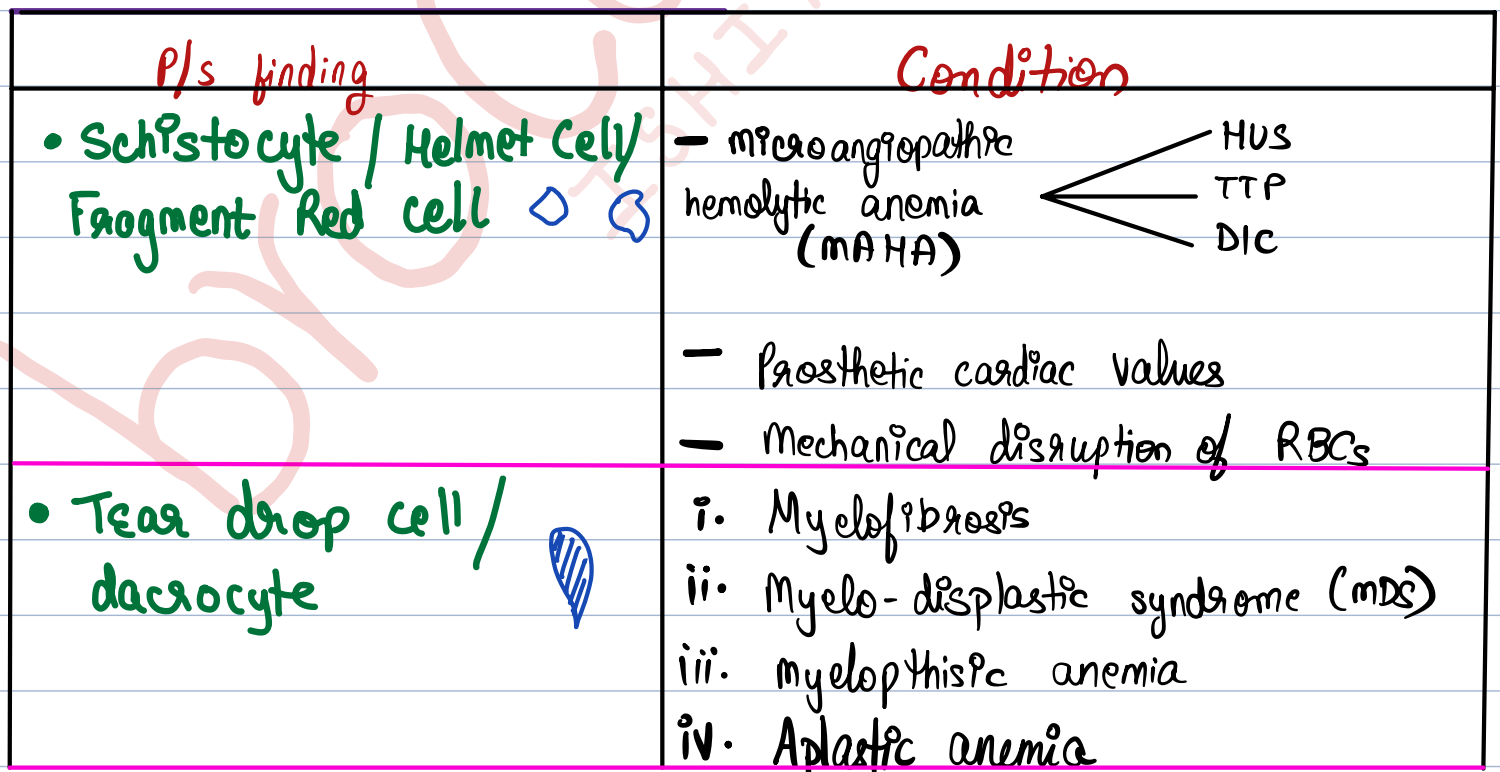 P/s finding
Condition
• Schistocyte / Helmet Cell/
Fragment Red cell
– microangiopathic
hemolytic anemia
(mAHA)
HUS
TTP
DIC
– Prosthetic cardiac values
– Mechanical disruption of RBCs
• Tear drop cell /
dacrocyte
i. Myelofibrosis
ii. Myelo-displastic syndrome (mDS)
iii. myelopthisic anemia
iv. Aplastic anemia